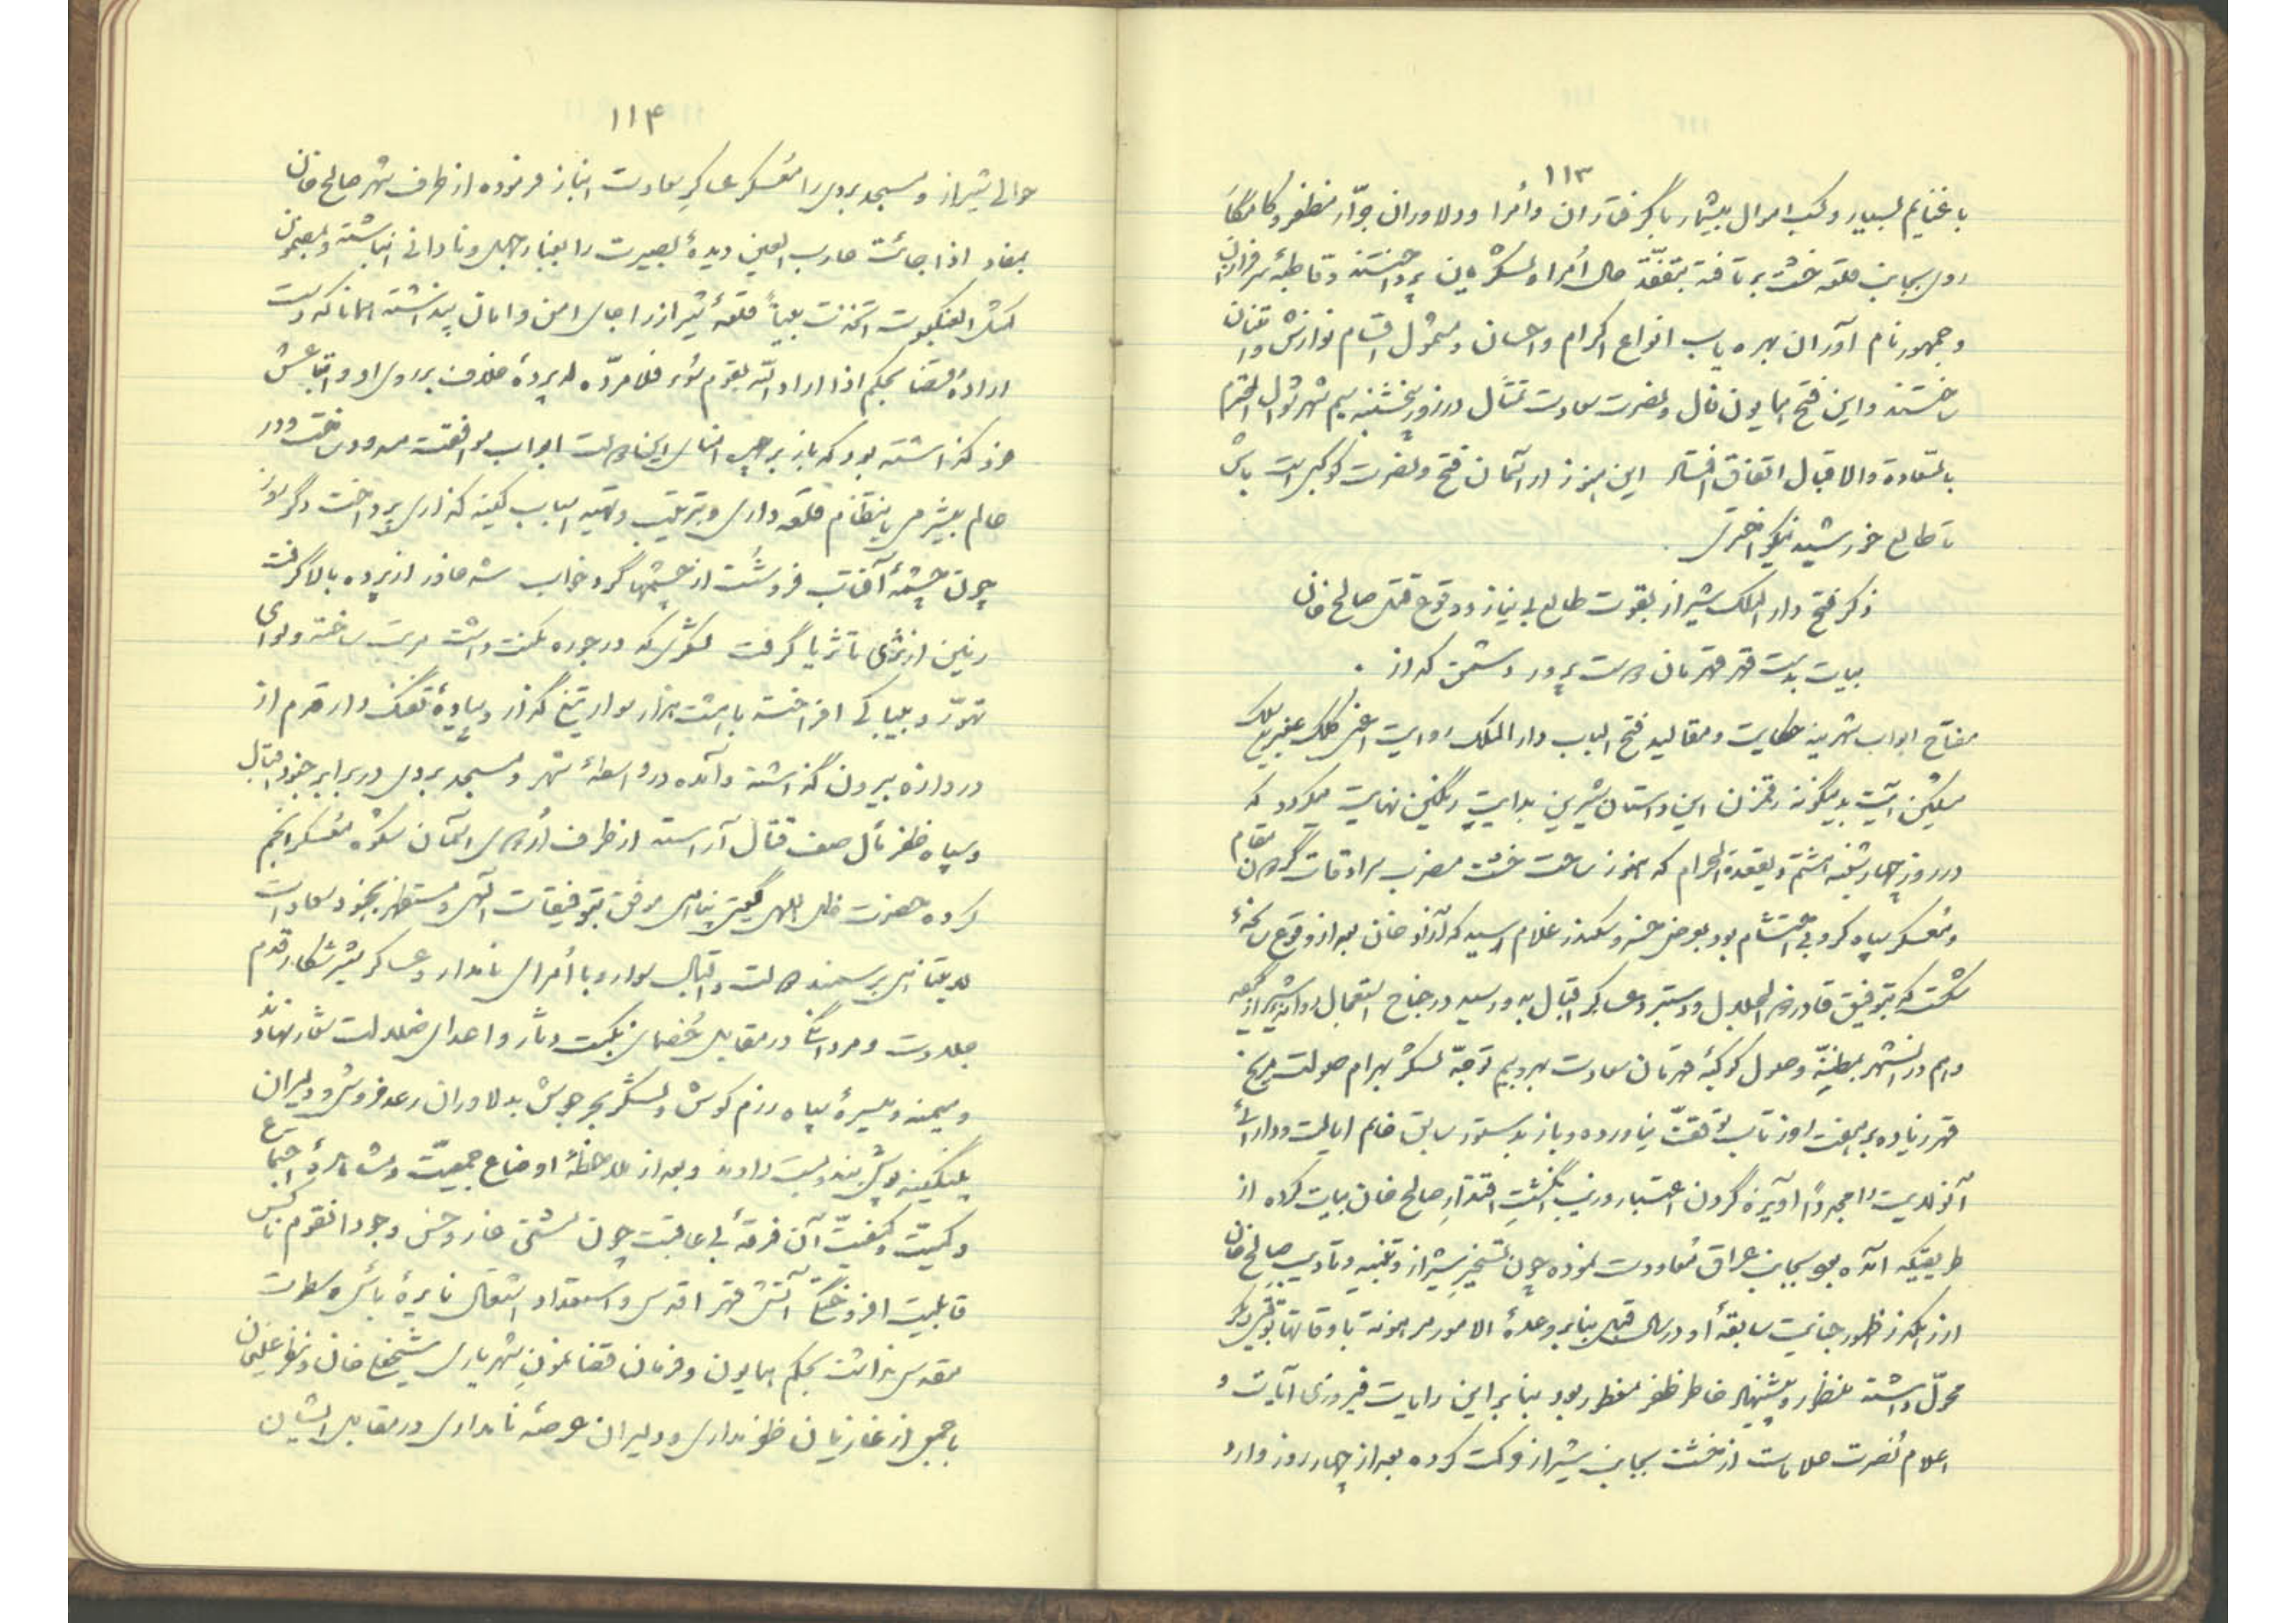 ۱۱۳
با غنایم بسیار و کسب اموال بیشمار با گرفتاران و اُمرا و دلاوران جرّار مظفر و کامکار
روی بجانب قلعه خشت برتافته بتفقّد حال اُمرا و لشکریان پرداختند و قاطبهٔ سرفرازان
و جمهور نام آوران بهره یاب انواع اکرام و احسان و مشمول اقسام نوازش و امتنان
ساختند و این فتح همایون فال و نصرت سعادت تمثال در روز پنجشنبه سیم شهر شوال المکرم
بالسّعادة والاقبال اتفاق افتاد این هنوز از آسمان فتح و نصرت کوکبی است باش
تا طالع خورشید نیکو اختری
ذکر فتح دار الملک شیراز بقوت طالع بی نیاز و وقوع قتل صالح خان
بیات بدست قهر قهرمان دوست پرور دشمن گداز .
مفتاح ابواب شهرینه حکایت و مقالید فتح الباب دار الملک روایت اعنی کلک عنبرین سلک
مشکین آیت بدینگونه رقمزن این داستان شیرین بدایت رنگین نهایت میگردد که
در روز چهارشنبه هشتم ذیقعدة الحرام که هنوز ساحت خشت مضرب سرادقات گردون مقام
و معسکر سپاه کروبی احتشام بود بعرض خسرو سکندر غلام رسید که آزاد خان بعد از وقوع سانحهٔ
شکست که بتوفیق قادر ذو الجلال و دستبرد عساکر اقبال به او رسید در جناح استعجال روانه شیراز گردیده
و هم در آنشهر بمظنّهٔ وصول کوکبهٔ قهرمان سعادت بهر و بیم توجّه لشکر بهرام صولت مریخ
قهر زیاده بر هفت روز تاب توقف نیاورده و باز بدستور سابق خاتم ایالت و دارائی
آنولایت را مجدداً آویزهٔ گردن اعتبار و زیب انگشت اقتدار صالح خان بیات کرده از
طریقیکه آمده بود بجانب عراق معاودت نموده چون تسخیر شیراز و تنبیه و تأدیب صالح خان
از رهگذر ظهور خیانت سابقهٔ او در سال قبل بنابر وعدهٔ الامور مرهونة باوقاتها بوقت دیگر
محوّل داشته منظور و پیشنهاد خاطر ظفر مفطور بود بنابراین رایات فیروزی آیات و
اعلام نصرت علامات از خشت بجانب شیراز حرکت کرده بعد از چهار روز وارد
۱۱۴
حوالی شیراز و مسجد بردی را معسکر عساکر سعادت انباز فرموده از طرف شهر صالح خان
بمفاد اذا جائت حارب العین دیدهٔ بصیرت را بغبار جهل و نادانی انباشته و بمضمون
کمثل العنکبوت اتخذت بیتاً قلعهٔ شیراز را جای امن و امان پنداشته همانا که دست
ارادهٔ قضا بحکم اذا اراد اللّه بقوم سوء فلا مردّ له پردهٔ خلاف بر روی او و اتباعش
فرو گذاشته بود که باز بر چهرهٔ امنای این دولت ابواب موافقت مسدود ساخت و در
عالم بیشرمی بانتظام قلعه داری و ترتیب و تهیه اسباب کینه گذاری پرداخت دگر روز
چون چشمهٔ آفتاب فرو شست از چشمها گرد خواب شه خاور از پرده بالا گرفت
زمین از ثری تا ثریا گرفت لشکری که در حوزه تمکنت داشت مرتب ساخته و لوای
تهوّر و بیباکی افراخته با هشت هزار سوار تیغ گذار و پیادهٔ تفنگ دار قدم از
دروازه بیرون گذاشته و آمده در واسطهٔ شهر و مسجد بردی در برابر جنود اقبال
و سپاه ظفر مآل صف قتال آراسته از طرف اُردوی آسمان شکوه معسکر انجم
گروه حضرت ظل اللهی گیتی پناهی موفق بتوفیقات الهی و مستظهر بجنود سعادت
لایتناهی بر سمند دولت و اقبال سوار و با اُمرای نامدار و عساکر شیر شکار قدم
جلادت و مردانگی در مقابل خصمای نکبت دثار و اعدای ضلالت شعار نهادند
و میمنه و میسرهٔ سپاه رزم کوش و لشکر بحر جوش بدلاوران رعد خروش و دلیران
پلنگینه پوش بند و بست دادند و بعد از ملاحظهٔ اوضاع جمعیّت و مشاهدهٔ اجتماع
و کمیت و کیفیّت آن فرقهٔ بی عاقبت چون مشتی خار و خس وجود آنقوم ناکس
قابلیت افروختگی آتش قهر اقدس و استعداد اشتعال نایرهٔ بأس و سطوت
مقدس نداشت بحکم همایون و فرمان قضا نمون شهریاری شیخعلی خان و نظر علیخان
با جمعی از غازیان ظفر مداری و دلیران عرصهٔ نامداری در مقابل ایشان